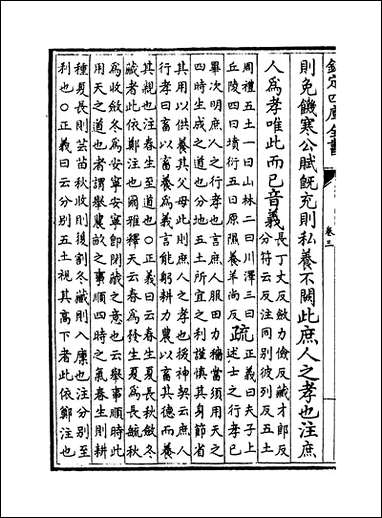 欽定四庫全書
卷三
則免饑寒公賦既充則私養不闕此庶人之孝也注庶
人為孝唯此而已音義
長丁丈反斂力儉反藏才郎反
分符云反注同别彼列反五土
周禮五土一曰山林二曰川澤三曰
丘陵四曰墳衍五曰原隰養羊尚反
疏
正義曰夫子上
述士之行孝已
畢次明庶人之行孝也言庶人服田力穡當須用天之
四時生成之道也分地五土所宜之利謹慎其身節省
其用以供養其父母此則庶人之孝也援神契云庶人
行孝曰畜以畜養為義言能躬耕力農以畜其德而養
其親也注春生至道也○正義曰云春生夏長秋斂冬
藏者此依鄭注也爾雅釋天云春為發生夏為長毓秋
為收斂冬為安寧安寧即閉藏之意也云舉事順時此
用天之道也者謂舉農畝之事順四時之氣春生則耕
種夏長則芸苗秋收則穫割冬藏則入廩也注分别至
利也○正義曰云分别五土視其高下者此依鄭注也